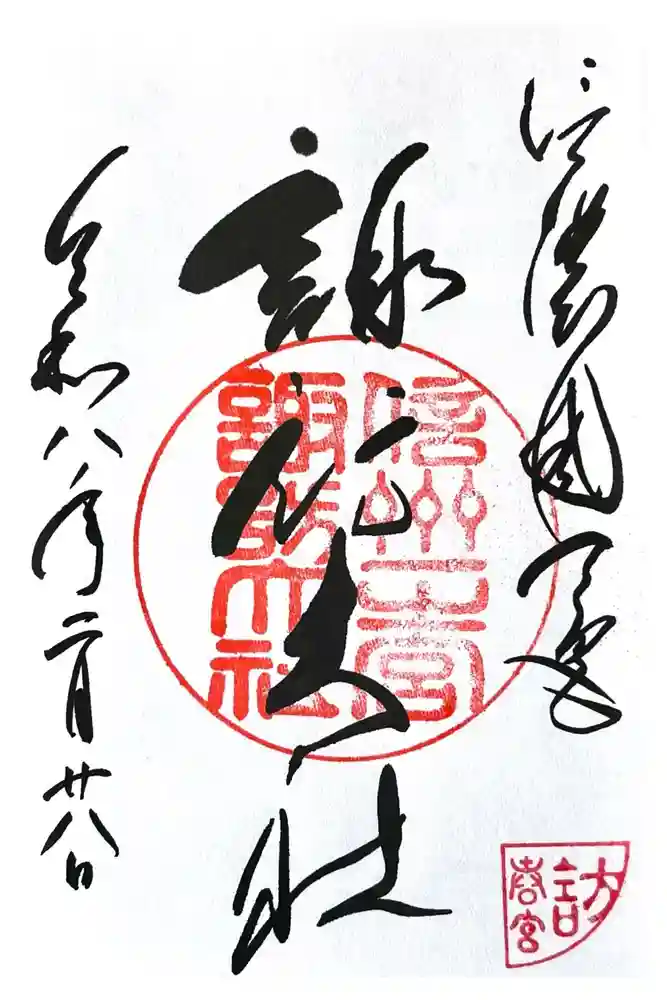 信濃國一之宮
諏訪大社
令和八年二月廿八日
信州一之宮
諏訪大社
訪
春宮